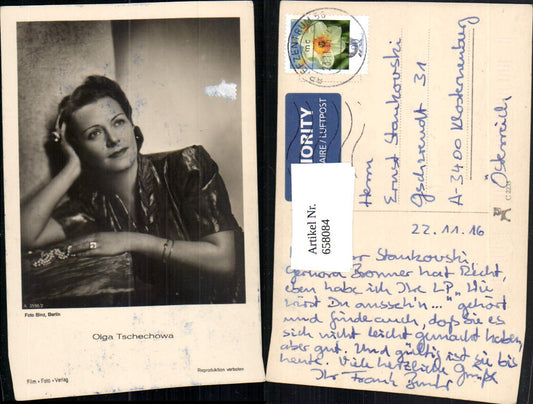 A 3596/3
Foto Binz, Berlin
Olga Tschechowa
Reproduktion verboten
Film-Foto-Verlag
BRIEFZENTRUM 56
PRIORITY
PRIORITAIRE / LUFTPOST
Artikel Nr.
658084
Herrn
Ernst Stankovski
Gschwendt 31
A-3400 Klosterneuburg
Österreich
22.11.16
Herr Stankovski
Gerhard Bronner hat Recht,
eben habe ich Ihre LP "Wie
wirst Du ausseh'n..." gehört
und finde auch, daß Sie es
sich nicht leicht gemacht haben,
aber gut. Und gültig ist sie bis
heute. Viele herzliche Grüße
Ihr Frank